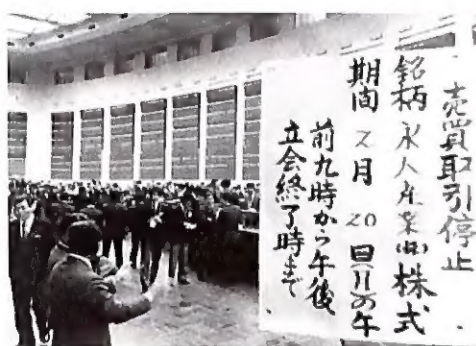 売買取引停止
銘柄 永大産業(株)株式
期間 2月20日(月)の午
前九時から午後
立会終了時まで